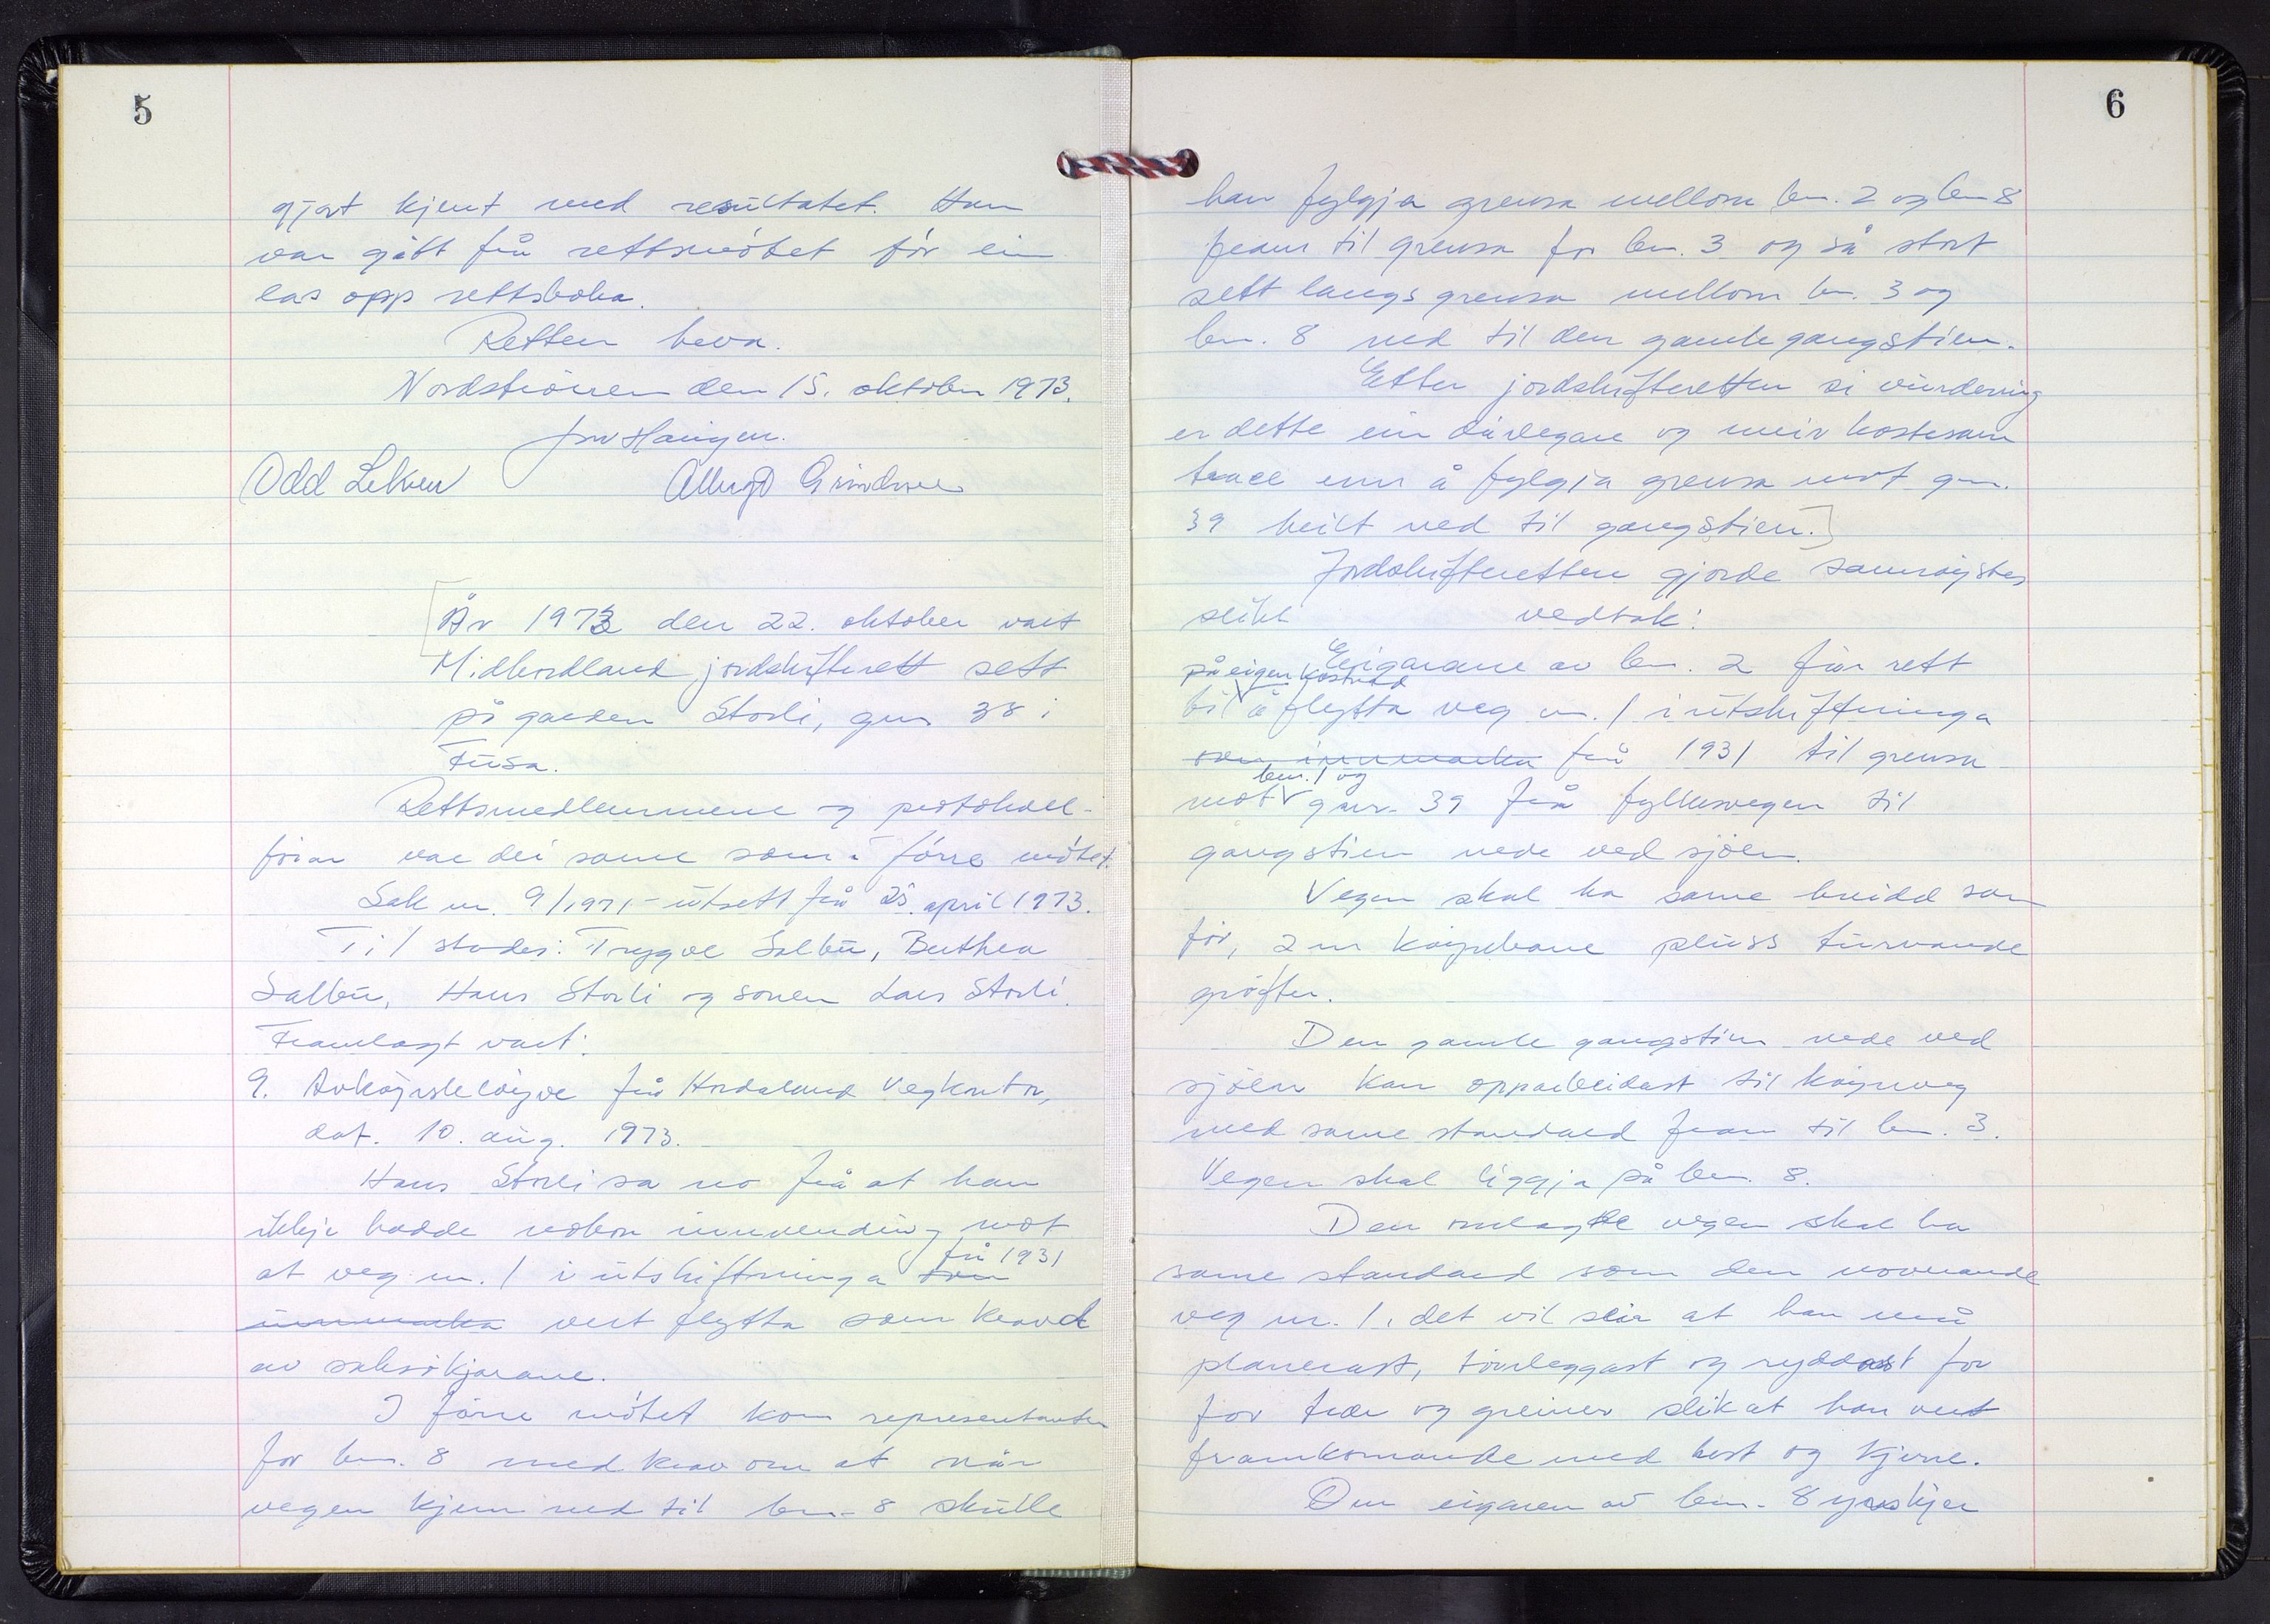 5
gjort kjent med resultatet. Han
var gått frå rettsmötet för ein
las opp rettsboka.
Retten heva.
Nordströnen den 15. oktober 1973.
Jon Haugen.
Odd Lekven
Grindnes
År 1973 den 22. oktober vart
Midhordland jordskifterett sett
på garden Storli, gnr 38 i
Fusa.
Rettsmedlemmene og protokoll-
förar var dei same som i förre mötet.
Sak nr. 9/1971 - utsett frå 25. april 1973.
Til stades: Trygve Salbu, Berthea
Salbu, Hans Storli og sonen Lars Storli.
Framlagt vart:
9. Avköyrsleløyve frå Hordaland Vegkontor,
dat. 10. aug. 1973.
Hans Storli sa no frå at han
ikkje hadde nokon innvending mot
frå 1931
at veg nr. 1 i utskiftninga over
innmarka vert flytta som kravd
av saksökjarane.
I förre mötet kom representanten
for bnr. 8 med krav om at når
vegen kjem ned til bnr. 8 skulle
6
han fylgja grensa mellom bnr. 2 og bnr 8
fram til grensa for bnr. 3 og så stort
sett langs grensa mellom bnr. 3 og
bnr. 8 ned til den gamle gangstien.
Etter jordskifteretten si vurdering
er dette ein dårlegare og meir kostesam
trace enn å fylgja grensa mot gnr.
39 heilt ned til gangstien.]
Jordskifteretten gjorde samröystes
slikt vedtak:
Eigarane av bnr. 2 får rett
på eigen kostnad
til å flytta veg nr. 1 i utskiftninga
over innmarka frå 1931 til grensa
bnr. 1 og
mot gnr. 39 frå fylkesvegen til
gangstien nede ved sjöen.
Vegen skal ha same breidd som
för, 2 m köyrebane pluss turvande
gröfter.
Den gamle gangstien nede ved
sjöen kan opparbeidast til köyreveg
med same standard fram til bnr. 3.
Vegen skal liggja på bnr. 8.
Den omlagde vegen skal ha
same standard som den noverande
veg nr. 1, det vil seia at han må
planerast, törrleggast og ryddast for
for tre og greiner slik at han vert
framkomande med hest og kjerre.
Om eigaren av bnr. 8 ynskjer